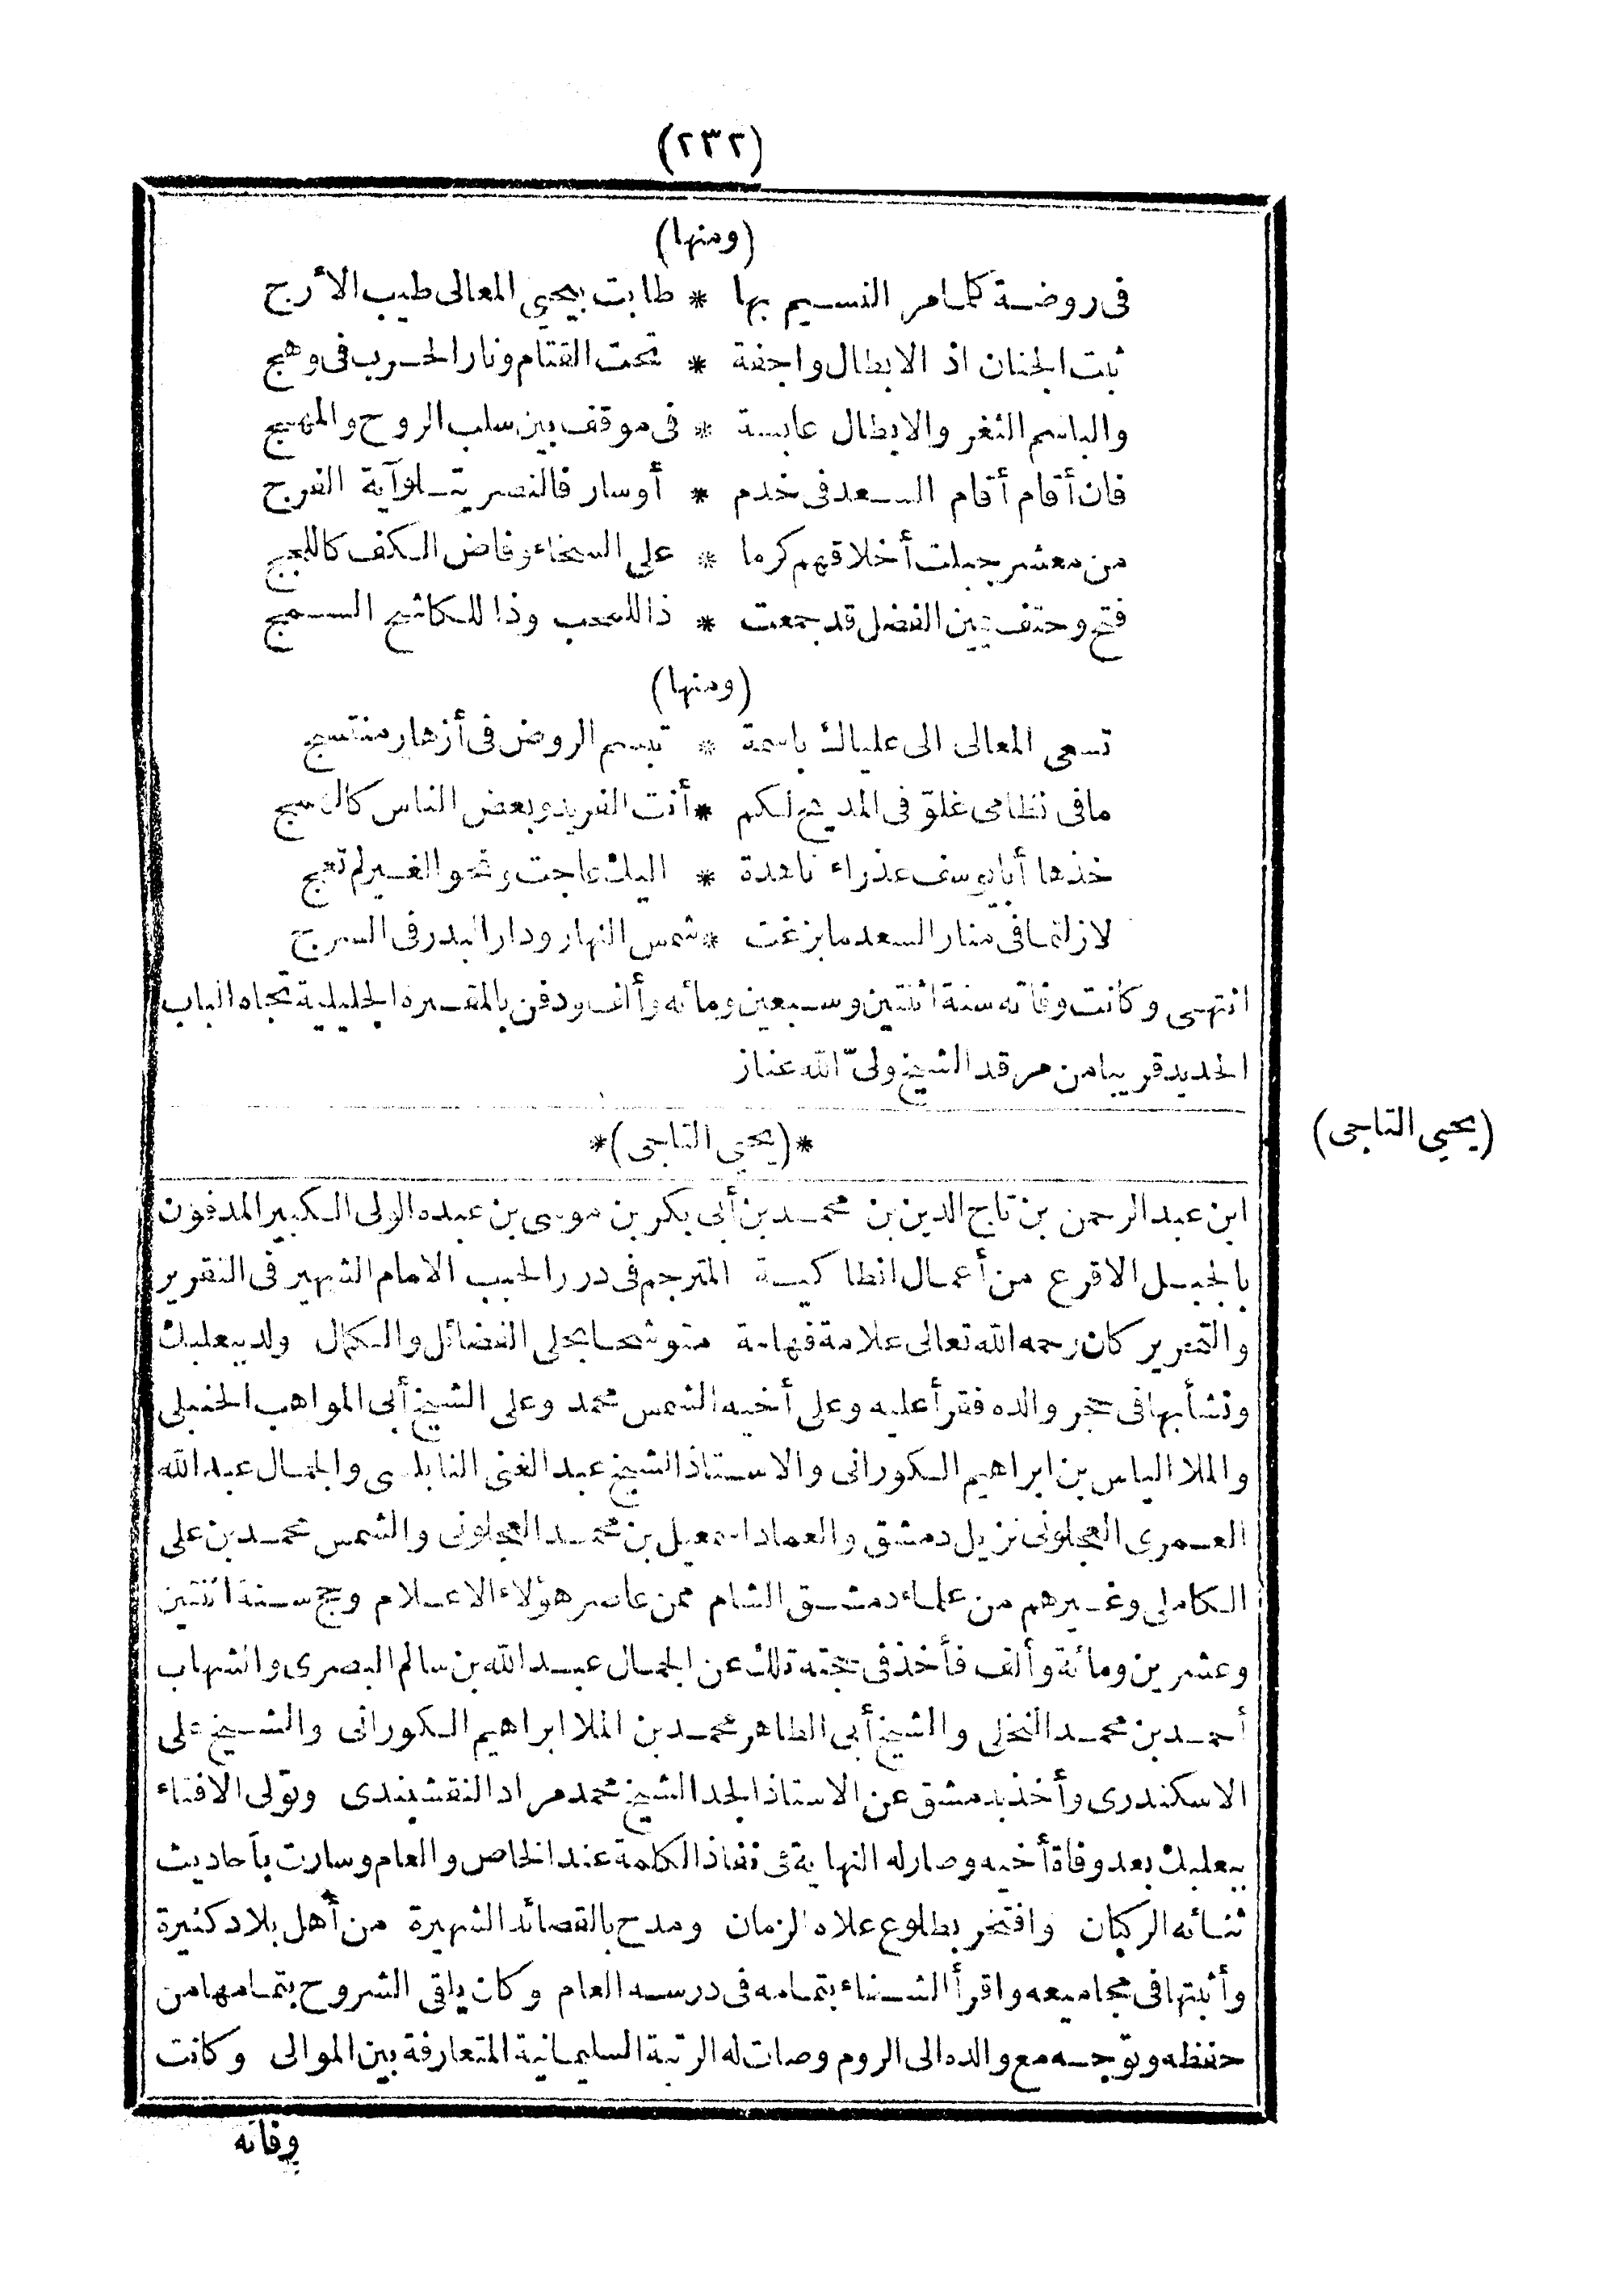 (٢٣٢)
(ومنها)
فى روضة كلما مر النسيم بها * طابت بيحيي المعالى طيب الأرج
ثبت الجنان اذ الابطال واجفة * تحت القتام ونار الحرب فى وهج
والباسم الثغر والابطال عابسة * فى موقف بين سلب الروح والمهج
فان أقام أقام السعد فى خدم * أوسار فالنصر يتلو آية الفرج
من معشر جبلت أخلاقهم كرما * على السخاء وفاض الكف كاللجج
فتح وحتف بين الفضل قد جمعت * ذا للمحب وذا للكاشح السمج
(ومنها)
تسعى المعالى الى علياك باسمة * تبسم الروض فى أزهار منتسج
مافى نظامى غلوّ فى المديح لكم * أنت الفريد وبعض الناس كالسبج
خذها أبا يوسف عذراء ناهدة * اليك عاجت ونحو الغير لم تعج
لازلتما فى منار السعد ما بزغت * شمس النهار ودار البدر فى السرج
انتهى وكانت وفاته سنة اثنتين وسبعين ومائه وألف ودفن بالمقبره الجليلية تجاه الباب
الجديد قريبا من مرقد الشيخ ولىّ الله عناز
(يحيي التاجى)
*(يحيي التاجى)*
ابن عبد الرحمن بن تاج الدين بن محمد بن أبى بكر بن موسى بن عبده الولى الكبير المدفون
بالجبل الاقرع من أعمال انطاكية المترجم فى در الحبب الامام الشهير فى التقرير
والتحرير كان رحمه الله تعالى علامة فهامة متوشحا بحلى الفضائل والكمال ولد ببعلبك
ونشأبها فى حجر والده فقرأ عليه وعلى أخيه الشمس محمد وعلى الشيخ أبى المواهب الحنبلى
والملا الياس بن ابراهيم الكورانى والاستاذ الشيخ عبد الغنى النابلسى والجمال عبد الله
العمرى العجلونى نزيل دمشق والعماد اسمعيل بن محمد العجلونى والشمس محمد بن على
الكاملى وغيرهم من علماء دمشق الشام ممن عاصر هؤلاء الاعلام وحج سنة اثنتين
وعشرين ومائة وألف فأخذ فى حجته تلك عن الجمال عبد الله بن سالم البصرى والشهاب
أحمد بن محمد النخلى والشيخ أبى الطاهر محمد بن الملا ابراهيم الكورانى والشيخ على
الاسكندرى وأخذ بدمشق عن الاستاذ الجد الشيخ محمد مراد النقشبندى وتولى الافتاء
ببعلبك بعد وفاة أخيه وصار له النهاية فى نفاذ الكلمة عند الخاص والعام وسارت بأحاديث
ثنائه الركبان وافتخر بطلوع علاه الزمان ومدح بالقصائد الشهيرة من أهل بلاد كثيرة
وأثبتها فى مجاميعه واقرأ الشفاء بتمامه فى درسه العام وكان يلقى الشروح بتمامها من
حفظه وتوجه مع والده الى الروم وصات له الرتبة السليمانية المتعارفة بين الموالى وكانت
وفاته